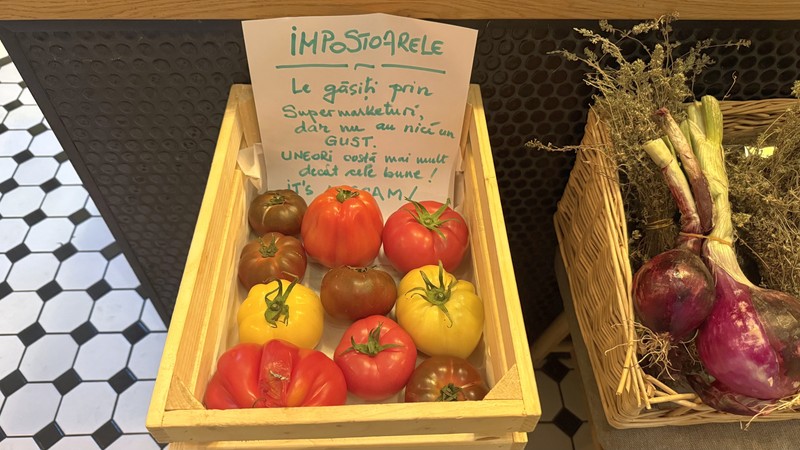 IMPOSTOARELE
Le găsiți prin
Supermarketuri,
dar nu au nici un
GUST.
UNEORI costă mai mult
decât cele bune!
iT's SCAM!